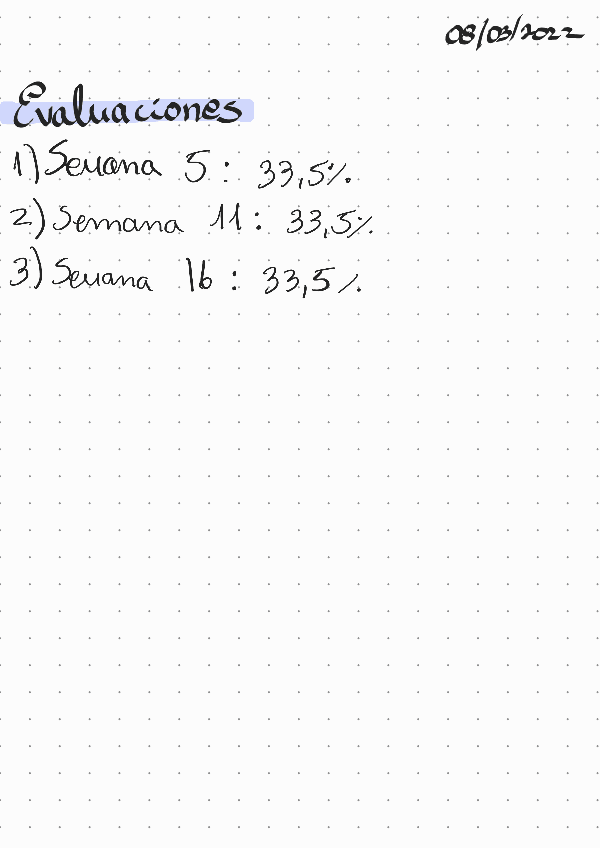 08/03/2022
Evaluaciones
1) Semana 5: 33,5%.
2) Semana 11: 33,5%.
3) Semana 16: 33,5%.